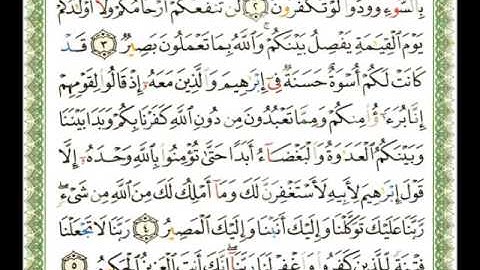 بِالسُّوٓءِ وَوَدُّوا۟ لَوْ تَكْفُرُونَ ٢ لَن تَنفَعَكُمْ أَرْحَامُكُمْ وَلَآ أَوْلَٰدُكُمْ
يَوْمَ ٱلْقِيَٰمَةِ يَفْصِلُ بَيْنَكُمْ وَٱللَّهُ بِمَا تَعْمَلُونَ بَصِيرٌ ٣ قَدْ
كَانَتْ لَكُمْ أُسْوَةٌ حَسَنَةٌ فِىٓ إِبْرَٰهِيمَ وَٱلَّذِينَ مَعَهُۥٓ إِذْ قَالُوا۟ لِقَوْمِهِمْ
إِنَّا بُرَءَٰٓؤُا۟ مِنكُمْ وَمِمَّا تَعْبُدُونَ مِن دُونِ ٱللَّهِ كَفَرْنَا بِكُمْ وَبَدَا بَيْنَنَا
وَبَيْنَكُمُ ٱلْعَدَٰوَةُ وَٱلْبَغْضَآءُ أَبَدًا حَتَّىٰ تُؤْمِنُوا۟ بِٱللَّهِ وَحْدَهُۥٓ إِلَّا
قَوْلَ إِبْرَٰهِيمَ لِأَبِيهِ لَأَسْتَغْفِرَنَّ لَكَ وَمَآ أَمْلِكُ لَكَ مِنَ ٱللَّهِ مِن شَىْءٍ
رَّبَّنَا عَلَيْكَ تَوَكَّلْنَا وَإِلَيْكَ أَنَبْنَا وَإِلَيْكَ ٱلْمَصِيرُ ٤ رَبَّنَا لَا تَجْعَلْنَا
فِتْنَةً لِّلَّذِينَ كَفَرُوا۟ وَٱغْفِرْ لَنَا رَبَّنَآ إِنَّكَ أَنتَ ٱلْعَزِيزُ ٱلْحَكِيمُ ٥